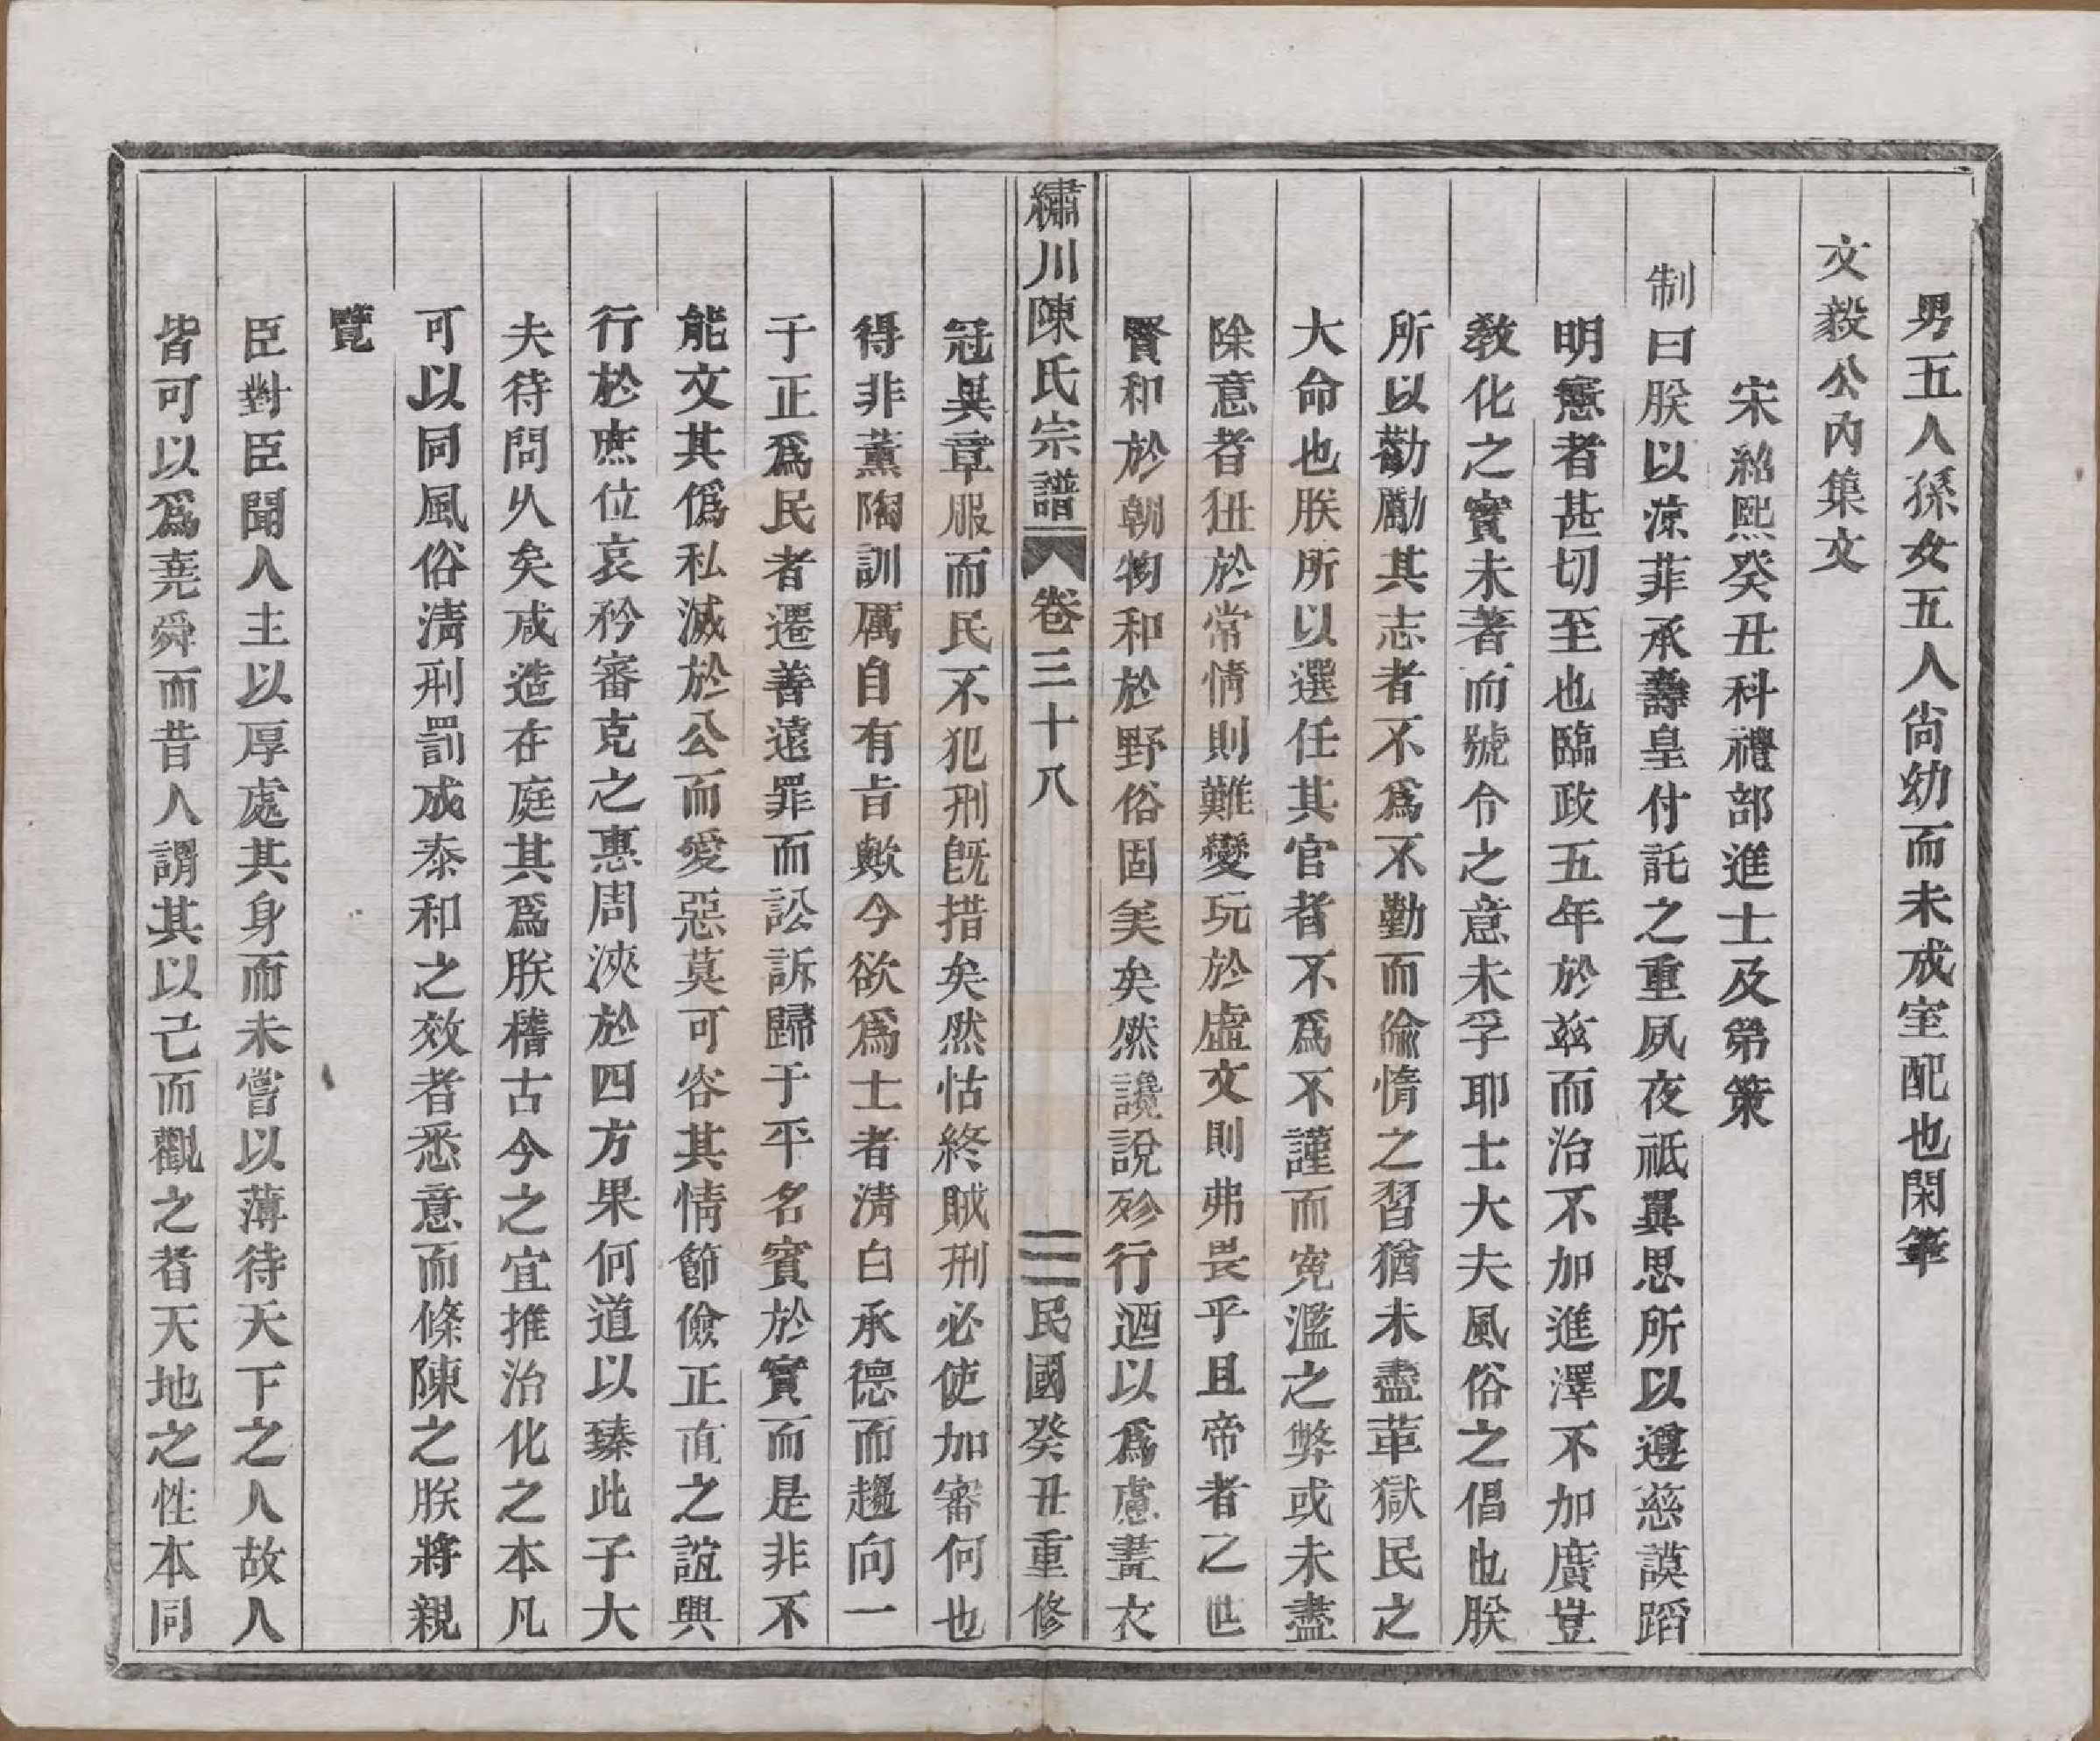 男五人孫女五人尙幼而未成室配也閑筆
文毅公內集文
宋紹熙癸丑科禮部進士及第策
制曰朕以涼菲承壽皇付託之重夙夜祗翼思所以遵慈謨蹈
明憲者甚切至也臨政五年於玆而治不加進澤不加廣豈
敎化之實未著而號令之意未孚耶士大夫風俗之倡也朕
所以勸勵其志者不爲不勤而偷惰之習猶未盡革獄民之
大命也朕所以選任其官者不爲不謹而寃濫之弊或未盡
除意者狃於常情則難變玩於虛文則弗畏乎且帝者之世
賢和於朝物和於野俗固美矣然讒說殄行迺以爲慮畫衣
繡川陳氏宗譜 卷三十八 三 民國癸丑重修
冠異章服而民不犯刑旣措矣然怙終賊刑必使加審何也
得非薰陶訓厲自有旨歟今欲爲士者淸白承德而趨向一
于正爲民者遷善遠罪而訟訴歸于平名賓於實而是非不
能文其僞私滅於公而愛惡莫可容其情節儉正直之誼興
行於庶位哀矜審克之惠周浹於四方果何道以臻此子大
夫待問久矣咸造在庭其爲朕稽古今之宜推治化之本凡
可以同風俗淸刑罰成泰和之效者悉意而條陳之朕將親
覽
臣對臣聞人主以厚處其身而未嘗以薄待天下之人故人
皆可以爲堯舜而昔人謂其以己而觀之者天地之性本同